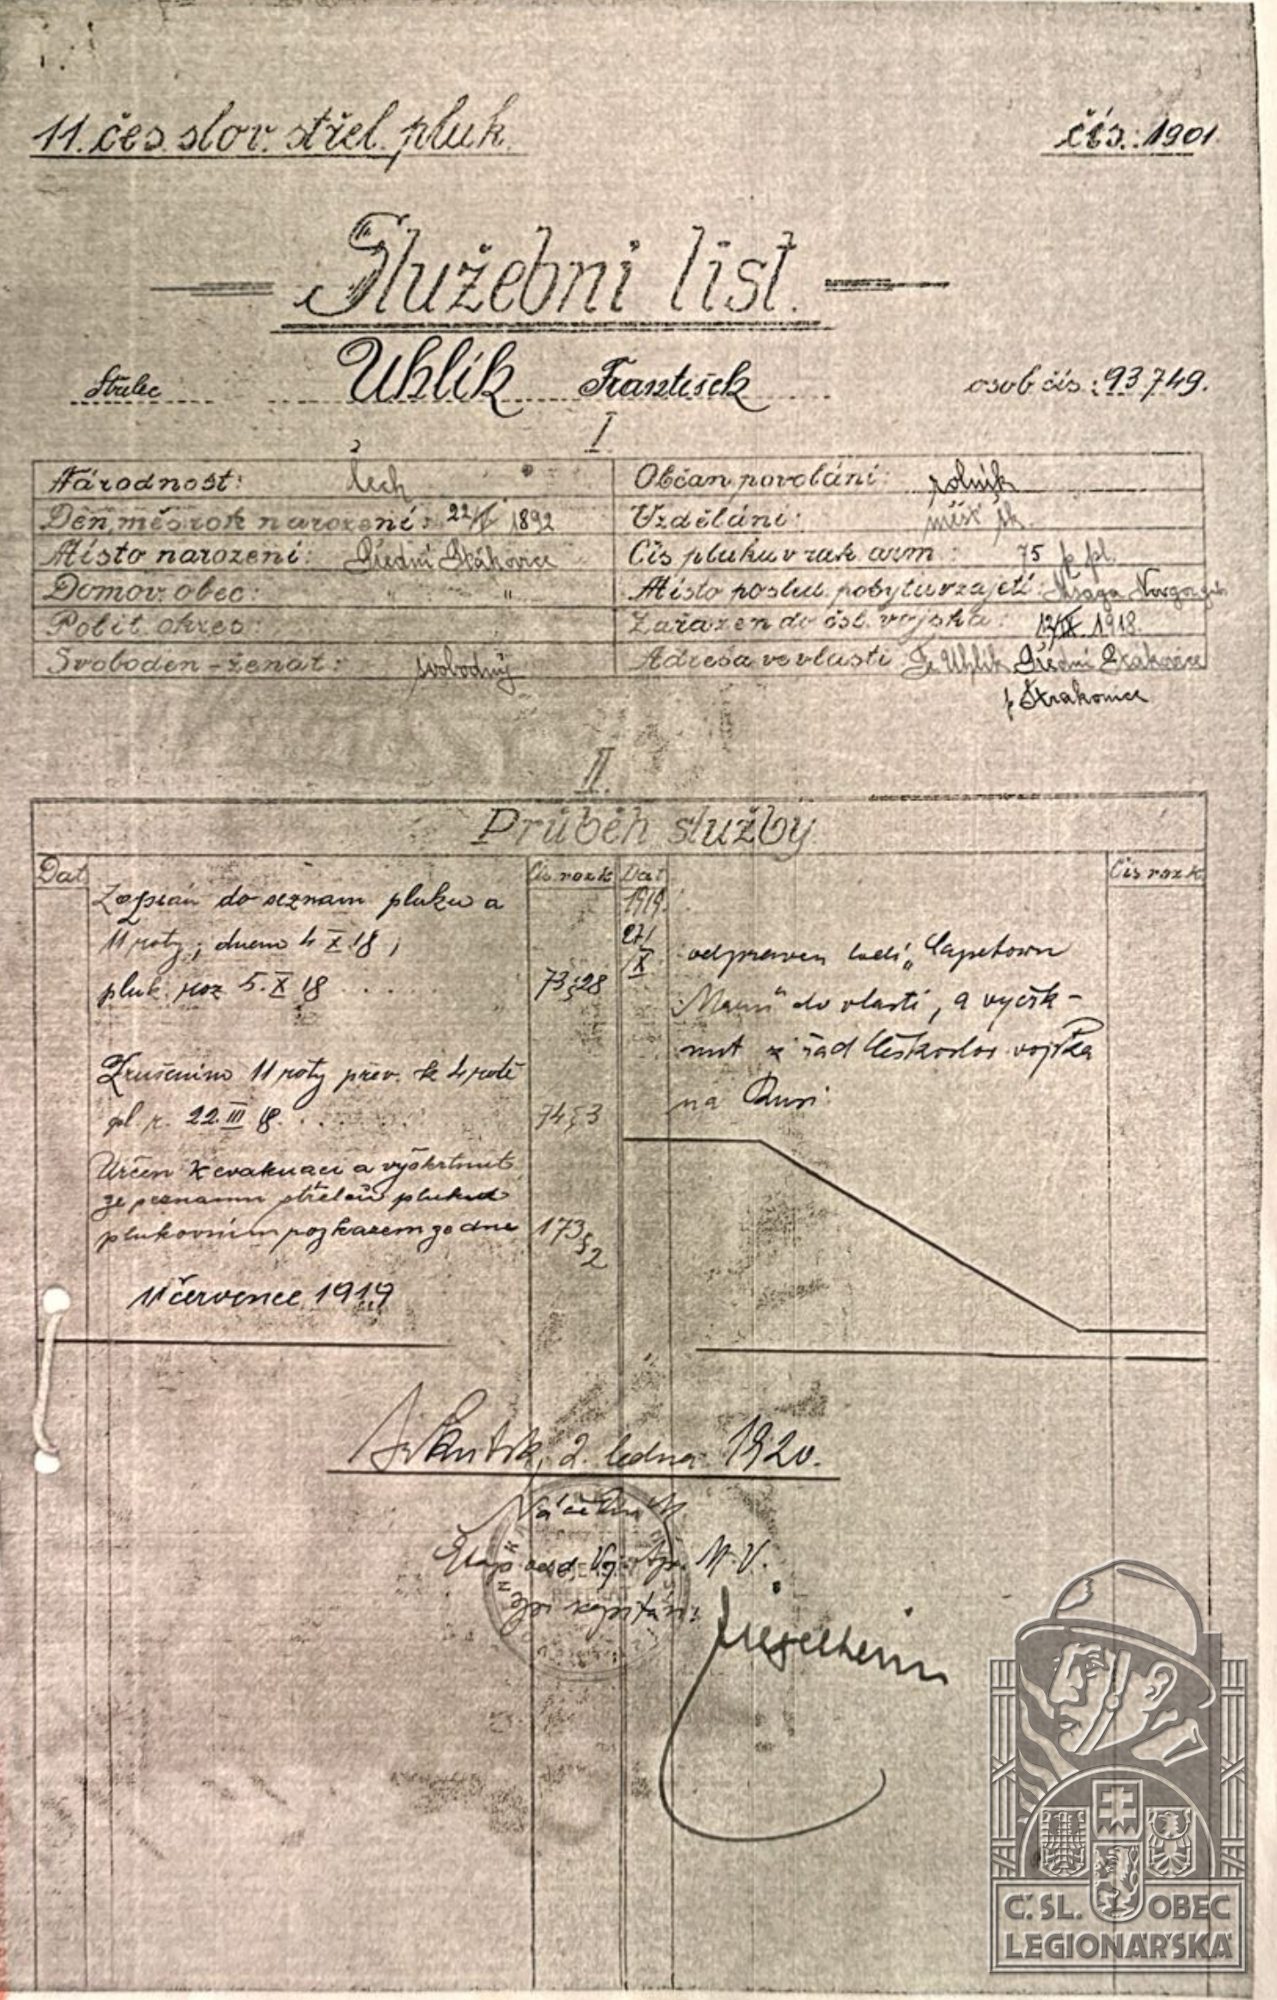 11. čes. slov. střel. pluk
čís.: 1901
Služební list.
Střelec Uhlík František osob čís: 93.749.
I
Národnost: čech
Občan povolání: rolník
Den, měs rok narození: 22/ 1892
Vzdělání: měšť šk.
Místo narození:
Čís pluku v rak arm: 75 p. pl.
Domov. obec: " "
Místo posled pobytu v zajetí: Msaga
Polit okres
Zařazen do čsl. vojska: 12/IX. 1918.
Svoboden-ženat: svobodný
Adresa ve vlasti Uhlík
p Strakonice
II.
Průběh služby
Dat
Čís rozk
Dat
Čís rozk
Zapsán do seznam pluku a
11 roty, dnem 4 X 18,
pluk. roz 5. X 18 . . . . 73 § 28
Zrušením 11 roty přev. k 4 rotě
pl r. 22. III 18. . . . . 74 § 3
Určen k evakuaci a vyškrtnut
ze seznamu střelců pluku
plukovním rozkazem ze dne 173 § 2
11 července 1919
1919.
27/X
odpraven lodí „Capetown
Maru" do vlasti, a vyšk-
nut z řad Českoslov vojska
na Rusi.
2. ledna 1920.
Náčelník
M. V.
Č. SL. OBEC
LEGIONÁŘSKÁ